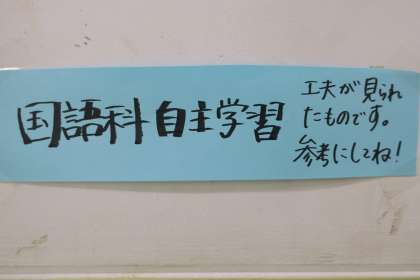 国語科自主学習
工夫が見られ
たものです。
参考にしてね!